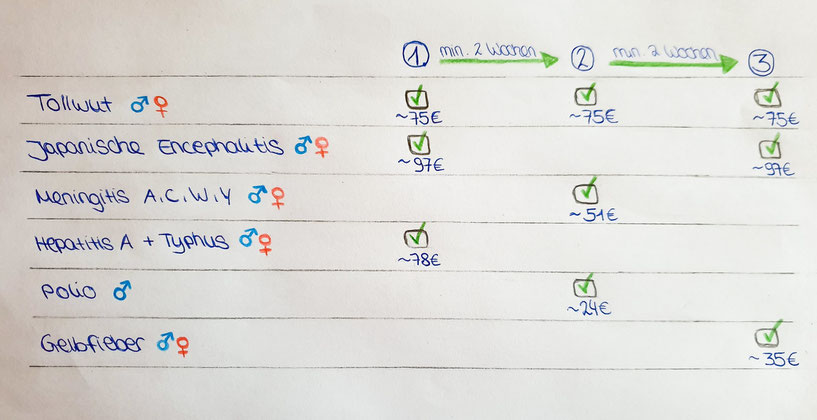 1 min. 2 Wochen 2 min. 2 Wochen 3
Tollwut ♂♀ ~75€ ~75€ ~75€
Japanische Encephalitis ♂♀ ~97€ ~97€
Meningitis A, C, W, Y ♂♀ ~51€
Hepatitis A + Typhus ♂♀ ~78€
Polio ♂ ~24€
Gelbfieber ♂♀ ~35€